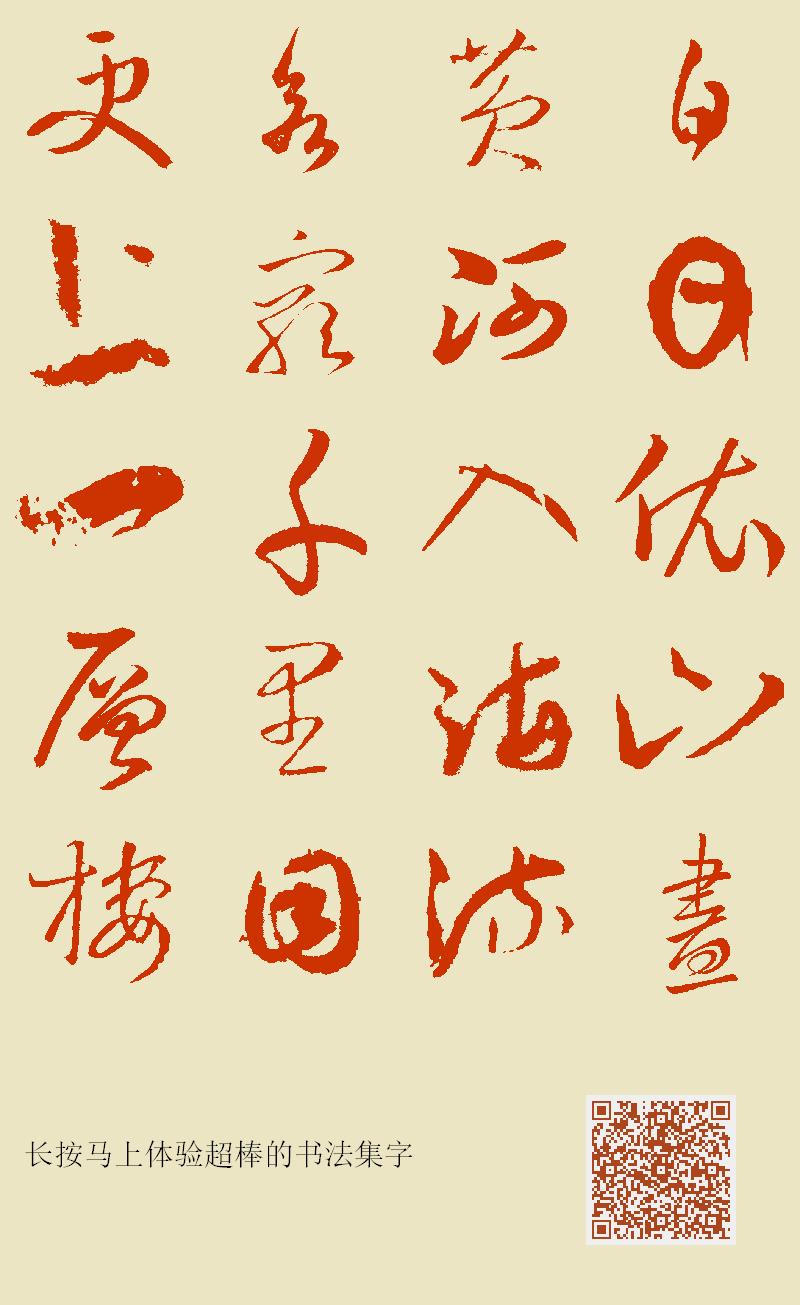 白日依山盡
黄河入海流
欲窮千里目
更上一層樓
长按马上体验超棒的书法集字